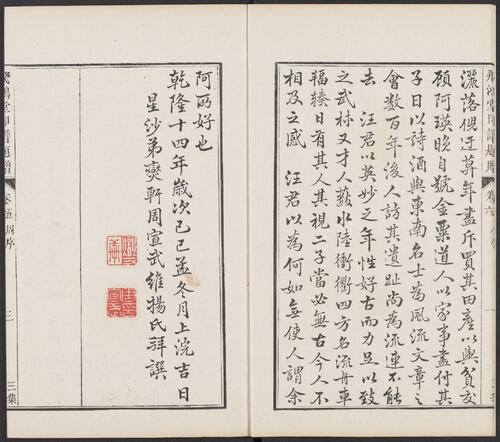 灑落倜迂莫年盡斥買其田產以與貧交
顧阿瑛晚自號金粟道人以家事盡付其
子日以詩酒與東南名士為風流文章之
會數百年後人訪其遺趾尚為流連不能
去 汪君以英妙之年性好古而力足以致
之武林又才人藪水陸衝衢四方名流舟車
輻輳日有其人其視二子當必無古今人不
相及之感 汪君以為何如無使人謂余
阿所好也
乾隆十四年歲次己巳孟冬月上浣吉日
星沙弟爕軒周宣武維揚氏拜譔
飛鴻堂印譜題贈
卷五周序
三
三集